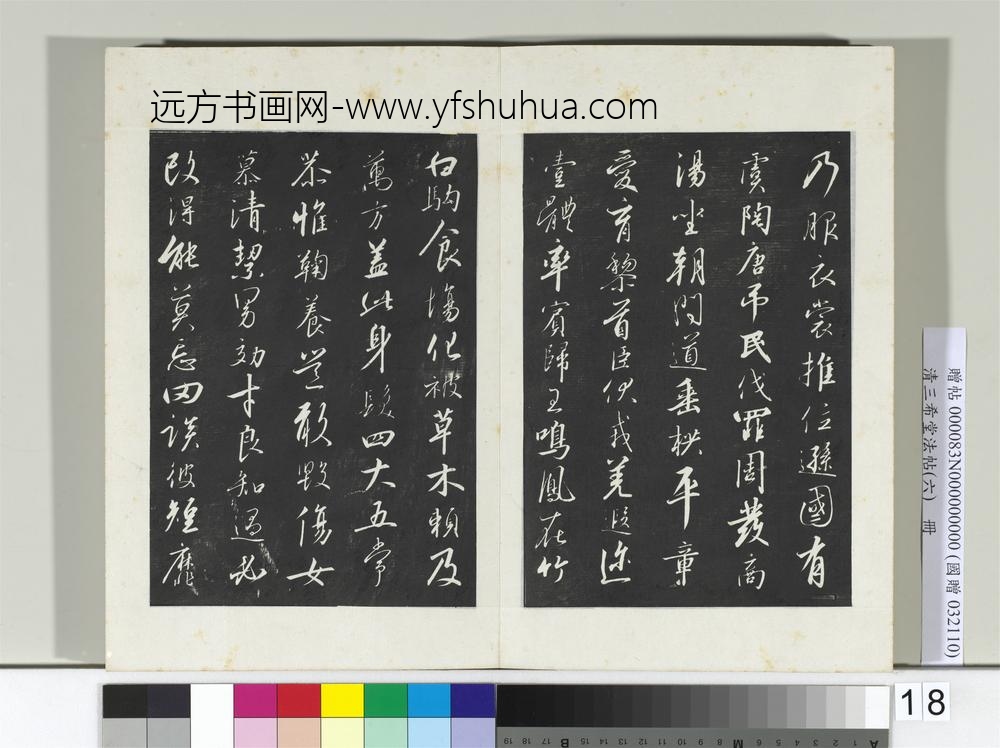 远方书画网-www.yfshuhua.com
乃服衣裳推位遜國有
虞陶唐吊民伐罪周發商
湯坐朝問道垂拱平章
愛育黎首臣伏戎羌遐迩
壹體率賓歸王鳴鳳在竹
白駒食場化被草木賴及
萬方蓋此身髮四大五常
恭惟鞠養豈敢毀傷女
慕清潔男効才良知過必
改得能莫忘罔談彼短靡
贈帖 000083N000000000 (國贈 032110)
清三希堂法帖(六) 冊
18